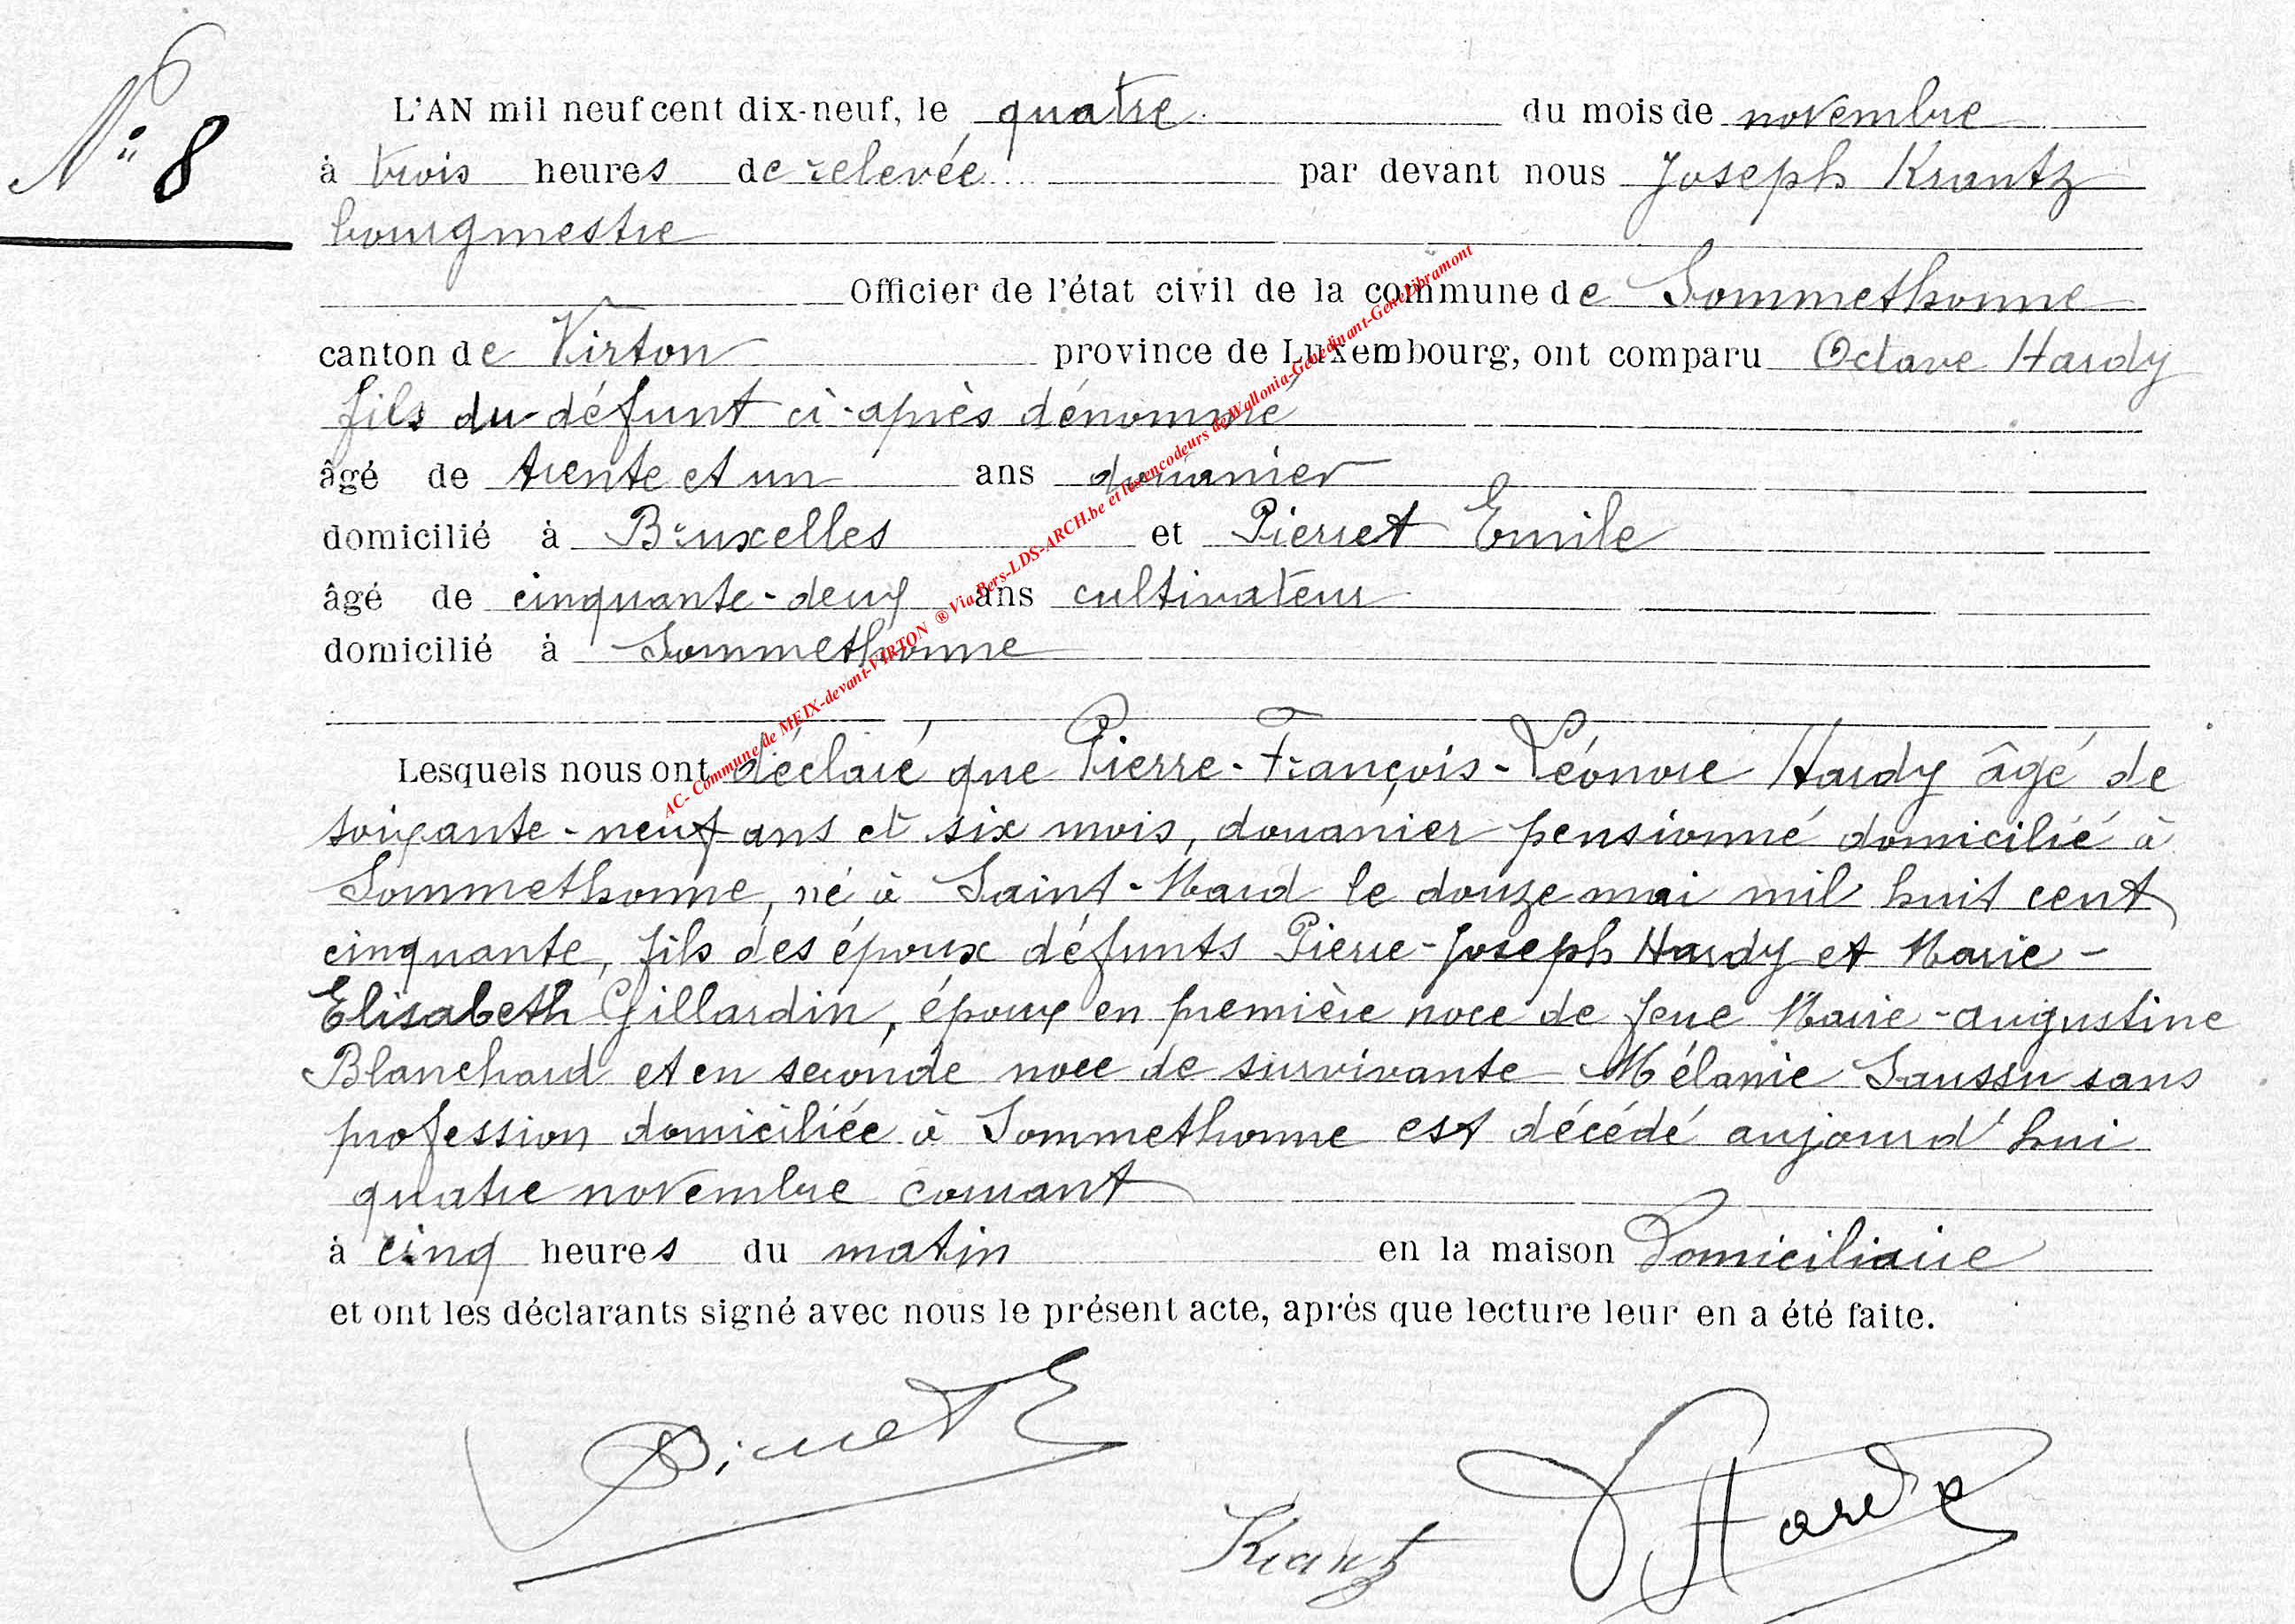 N° 8
L'AN mil neuf cent dix-neuf, le quatre du mois de novembre
à trois heures de relevée par devant nous Joseph Krantz
bourgmestre
Officier de l'état civil de la commune de Sommethonne
canton de Virton province de Luxembourg, ont comparu Octave Hardy
fils du défunt ci-après dénommé
âgé de trente et un ans douanier
domicilié à Bruxelles et Pierret Emile
âgé de cinquante-deux ans cultivateur
domicilié à Sommethonne
AC- Commune de MEIX-devant-VIRTON ® Via Pers-LDS-ARCH.be et les encodeurs de Wallonia-Genedinant-GeneLibramont
Lesquels nous ont déclaré que Pierre-François-Léonore Hardy âgé de
soixante-neuf ans et six mois, douanier pensionné domicilié à
Sommethonne, né à Saint-Mard le douze mai mil huit cent
cinquante, fils des époux défunts Pierre-Joseph Hardy et Marie-
Elisabeth Gillardin, époux en première noce de feue Marie-Augustine
Blanchard et en seconde noce de survivante Mélanie Saussu sans
profession domiciliée à Sommethonne est décédé aujourd'hui
quatre novembre courant
à cinq heures du matin en la maison Domiciliaire
et ont les déclarants signé avec nous le présent acte, après que lecture leur en a été faite.
Pierret E
Hardy
Krantz